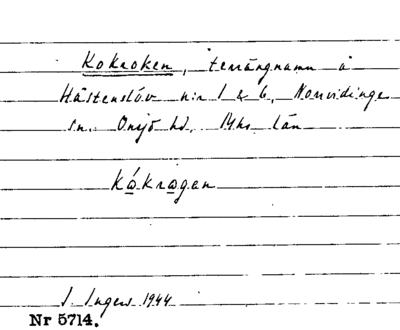 Kokroken, terrängnamn å
Hästenslöv n:r 1 & 6, Norrvidinge
sn. Onsjö hd. Mhs län
Kåkrogen
I. Ingers 1944
Nr 5714.